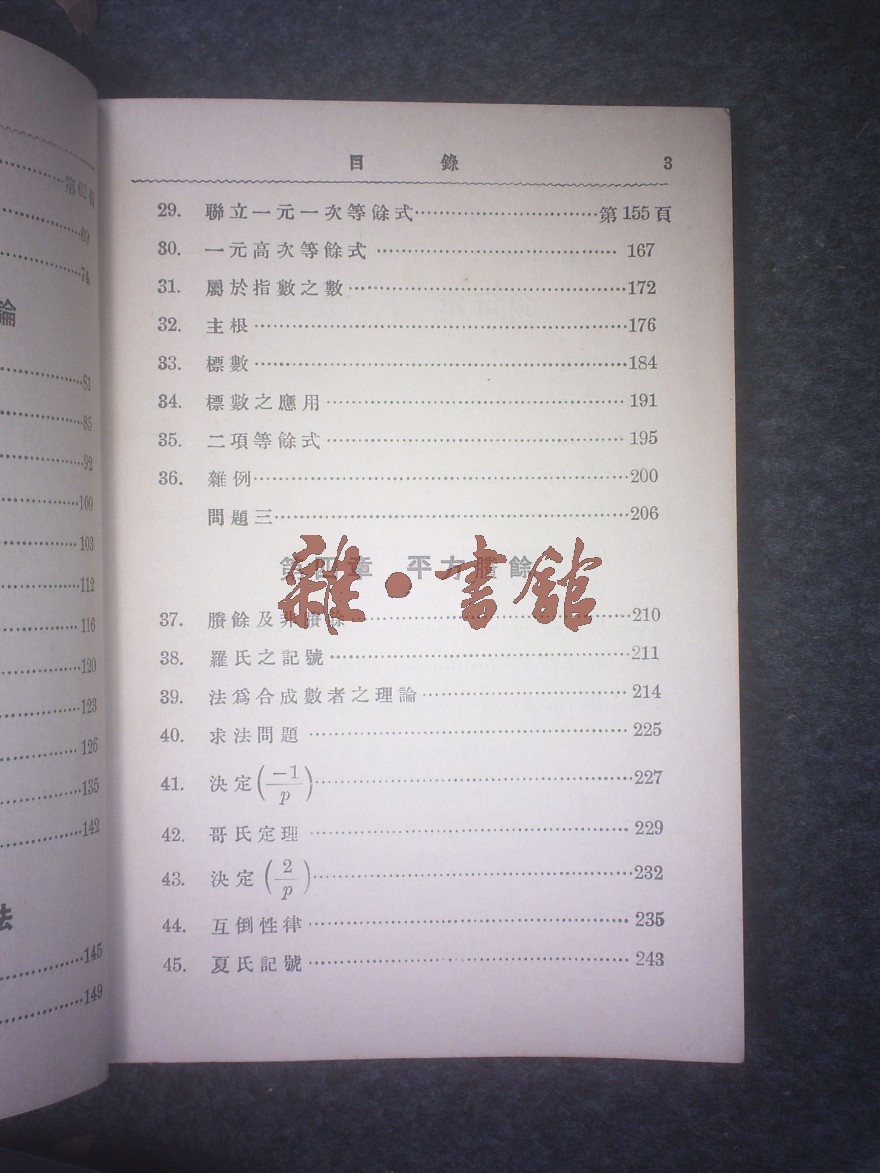 第62頁
69
74
論
81
85
92
100
103
112
116
120
123
126
135
142
法
145
149
目錄 3
29. 聯立一元一次等餘式……第155頁
30. 一元高次等餘式……167
31. 屬於指數之數……172
32. 主根……176
33. 標數……184
34. 標數之應用……191
35. 二項等餘式……195
36. 雜例……200
問題三……206
第四章 平方賸餘
雜·書館
37. 賸餘及非賸餘……210
38. 羅氏之記號……211
39. 法爲合成數者之理論……214
40. 求法問題……225
41. 決定(−1/p)……227
42. 哥氏定理……229
43. 決定(2/p)……232
44. 互倒性律……235
45. 夏氏記號……243